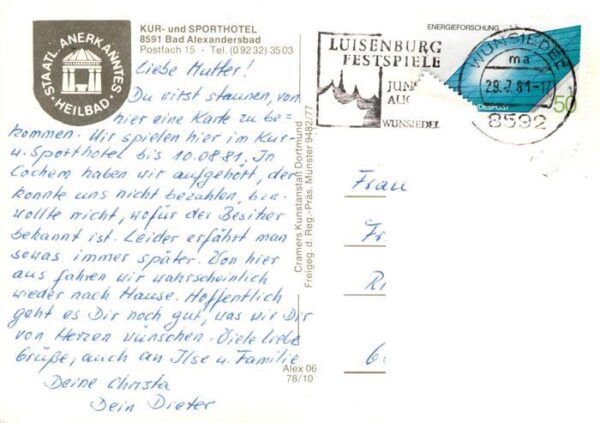 KUR- und SPORTHOTEL
8591 Bad Alexandersbad
Postfach 15 - Tel. (09232) 3503
STAATL. ANERKANNTES
HEILBAD
Liebe Mutter!
Du wirst staunen, von
hier eine Karte zu be=
kommen. Wir spielen hier im Kur-
u. Sporthotel bis 10.08.81. In
Cochem haben wir aufgehört, der
konnte uns nicht bezahlen, bzw.
wollte nicht, wofür der Besitzer
bekannt ist. Leider erfährt man
sowas immer später. Von hier
aus fahren wir wahrscheinlich
wieder nach Hause. Hoffentlich
geht es Dir noch gut, was wir Dir
von Herzen wünschen. Viele liebe
Grüße, auch an Ilse u. Familie
Deine Christa
Dein Dieter
Cramers Kunstanstalt Dortmund
Freigeg. d. Reg.-Präs. Münster 9482/77
Alex 06
78/10
LUISENBURG
FESTSPIELE
JUN
AUG
WUNSIEDEL
ENERGIEFORSCHUNG
50
WUNSIEDEL
ma
29.7.81-17
8592
Frau